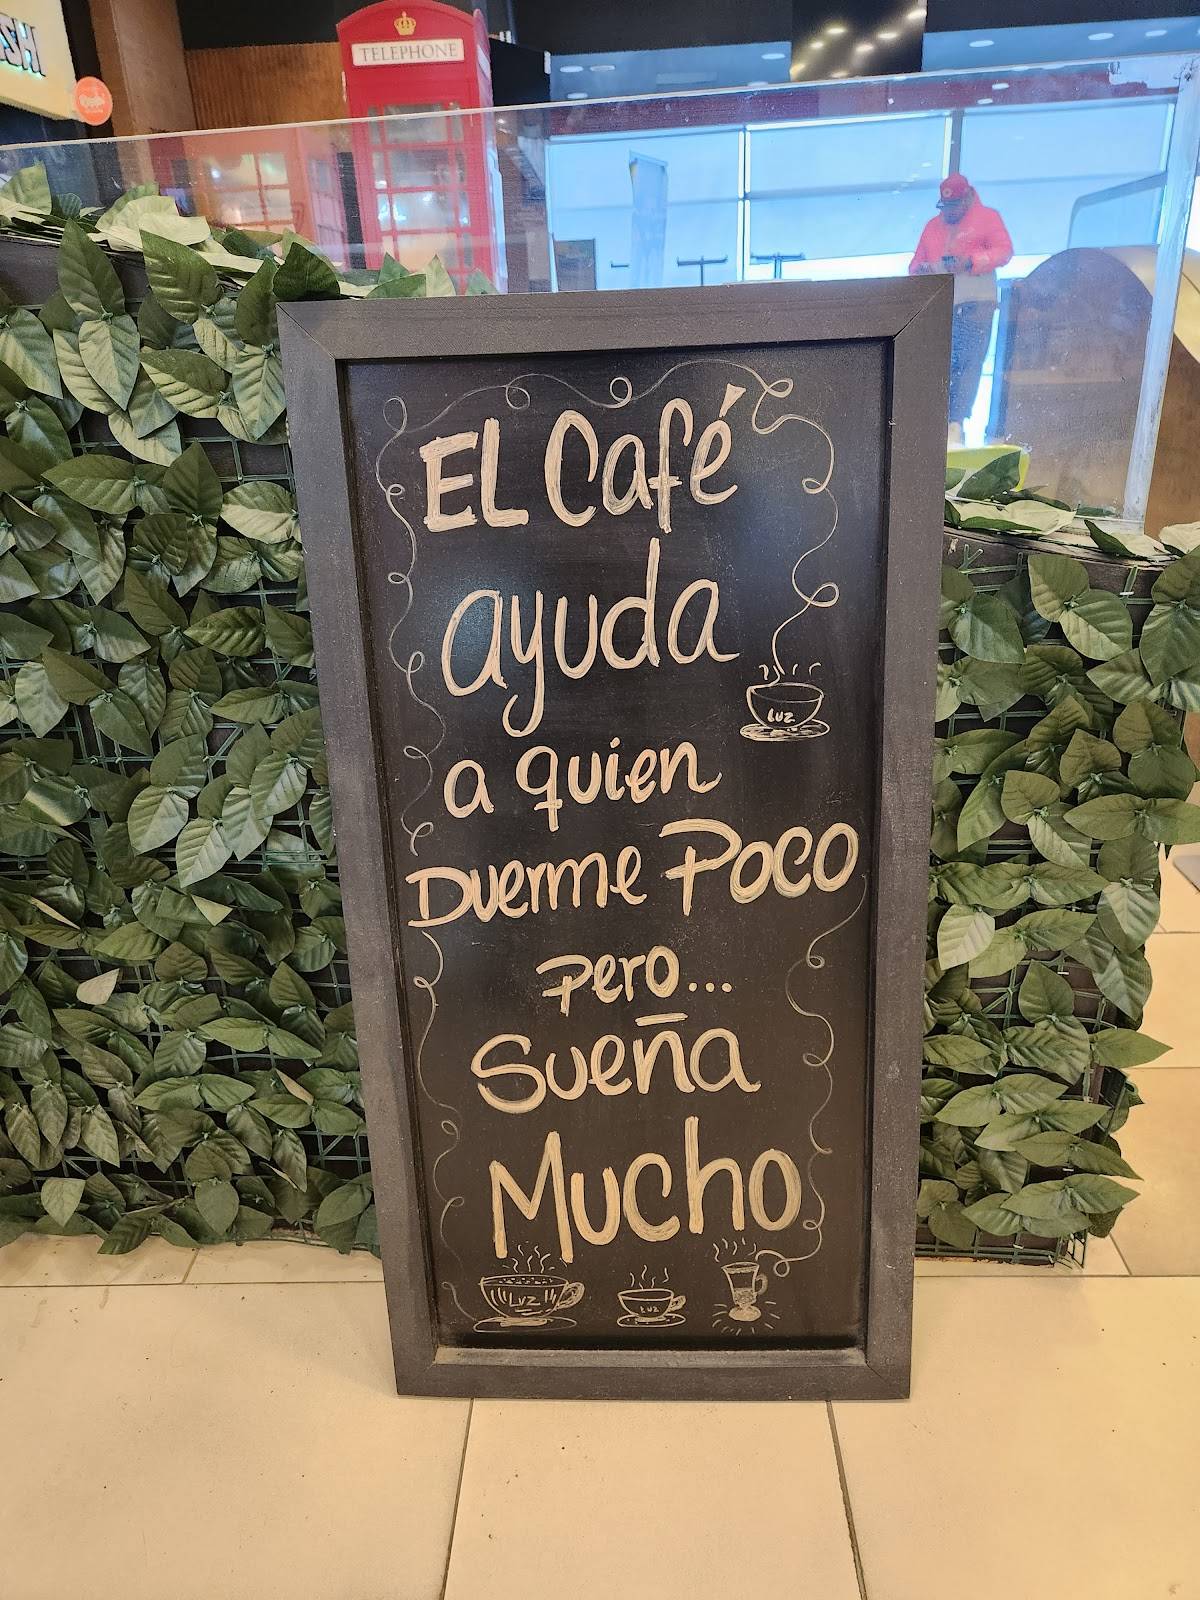 TELEPHONE
EL Café
ayuda
LUZ
a quien
Duerme Poco
pero...
Sueña
Mucho
LUZ
LUZ